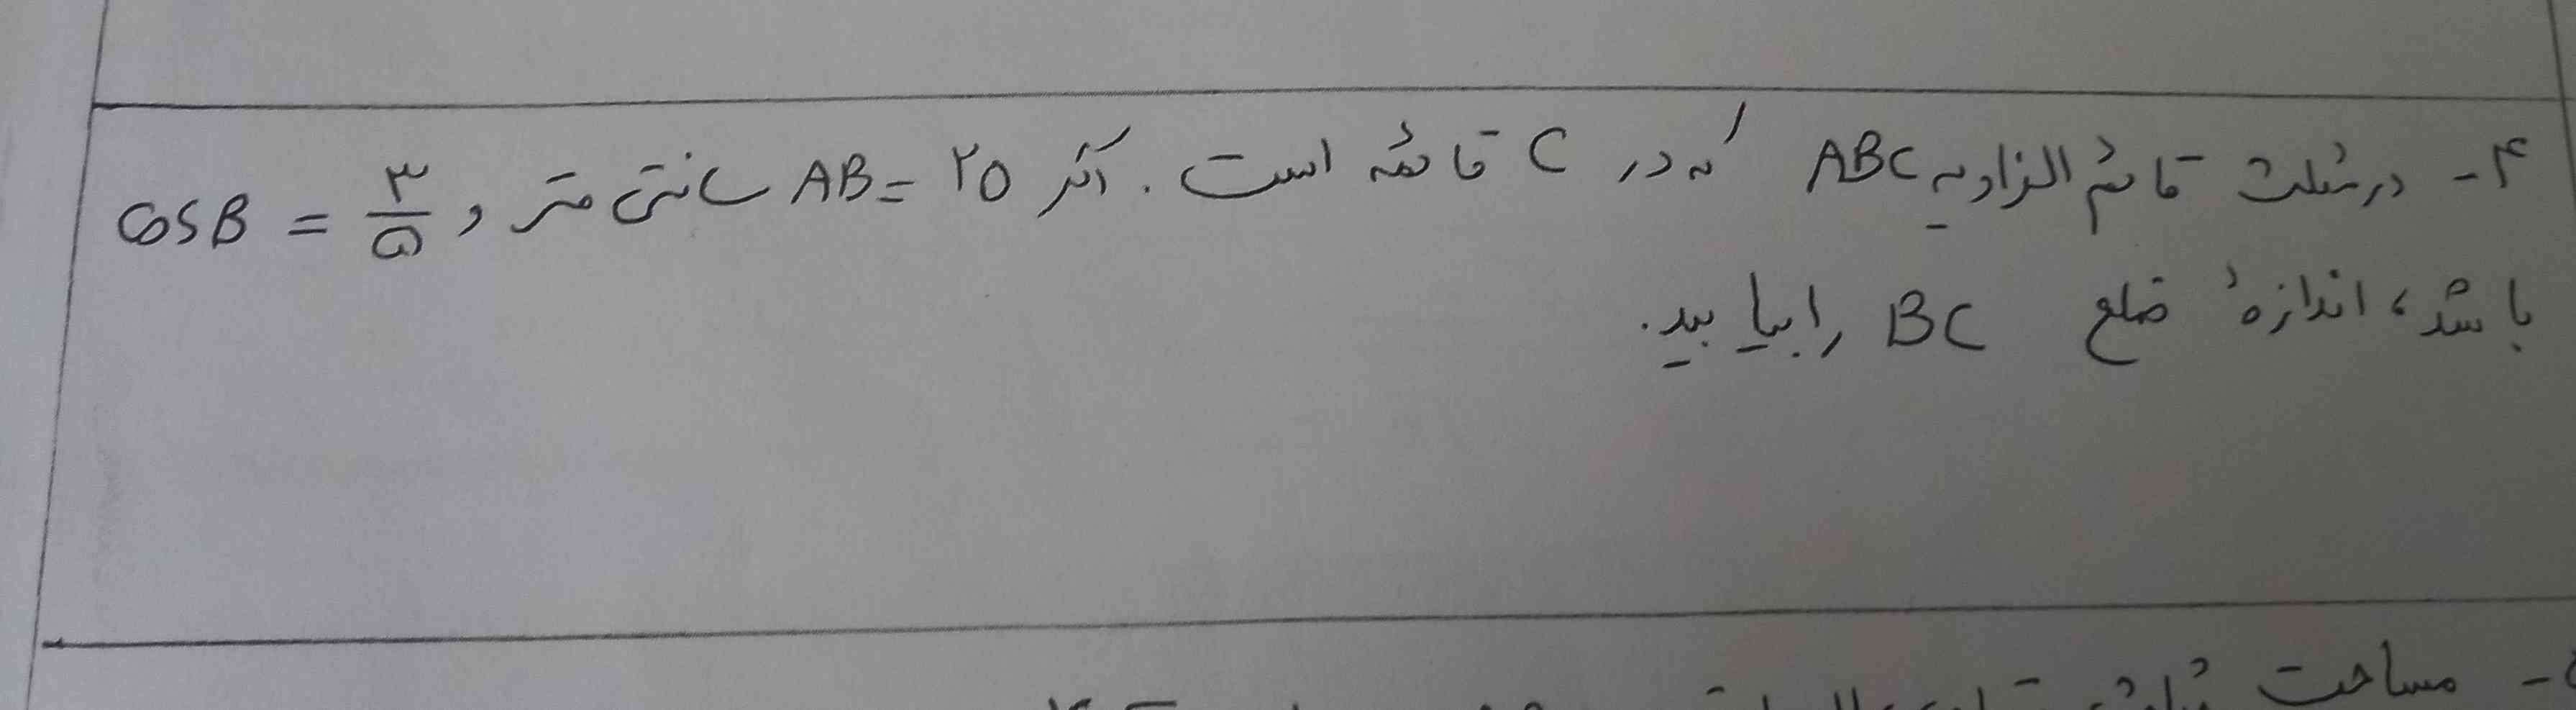 ۴- در مثلث قائم الزاویه ABC که در C قائمه است. اگر AB = ۲۵ سانتی متر و cosB = ۳/۵
باشد، اندازهٔ ضلع BC را بیابید.
مساحت